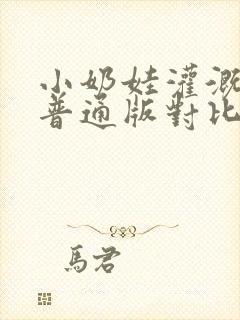 小奶娃灌溉
普通版對比
馬君